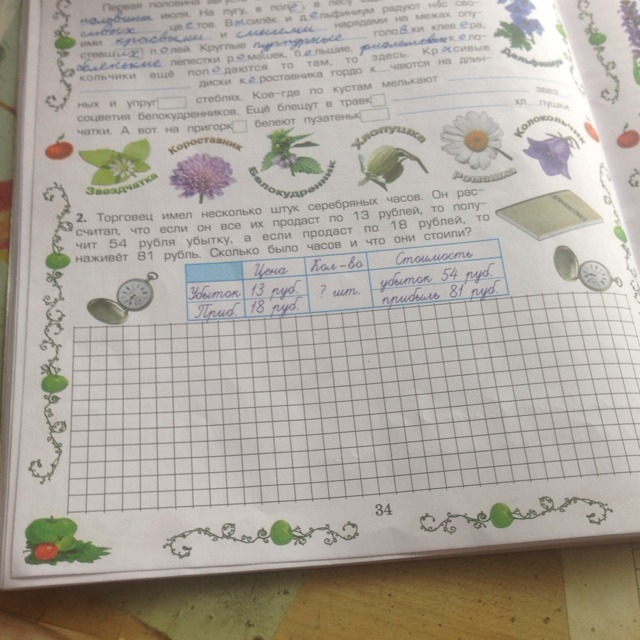 Первая половина
половины июля. На лугу, в поле, в лесу
ивых цветов. Василёк и дельфиниум радуют нас сво-
ими красивыми и синими нарядами на межах опу-
полей. Круглые пурпурные головки клевера,
лепестки ромашек, большие,
колокольчики ещё попадаются то там, то здесь. Красивые
диски короставника гордо к аются на длин-
ных и упруг стеблях. Кое-где по кустам мелькают звёз
соцветия белокудренников. Ещё блещут в травк хл пушки.
чатки. А вот на пригорк белеют пузатеньк
Звездчатка
Короставник
Белокудренник
Хлопушка
Ромашка
Колокольчик
2. Торговец имел несколько штук серебряных часов. Он рас-
считал, что если он все их продаст по 13 рублей, то полу-
чит 54 рубля убытку, а если продаст по 18 рублей, то
наживёт 81 рубль. Сколько было часов и что они стоили?
Цена Кол-во Стоимость
Убыток 13 руб. ? шт. убыток 54 руб.
Приб. 18 руб. прибыль 81 руб.
34